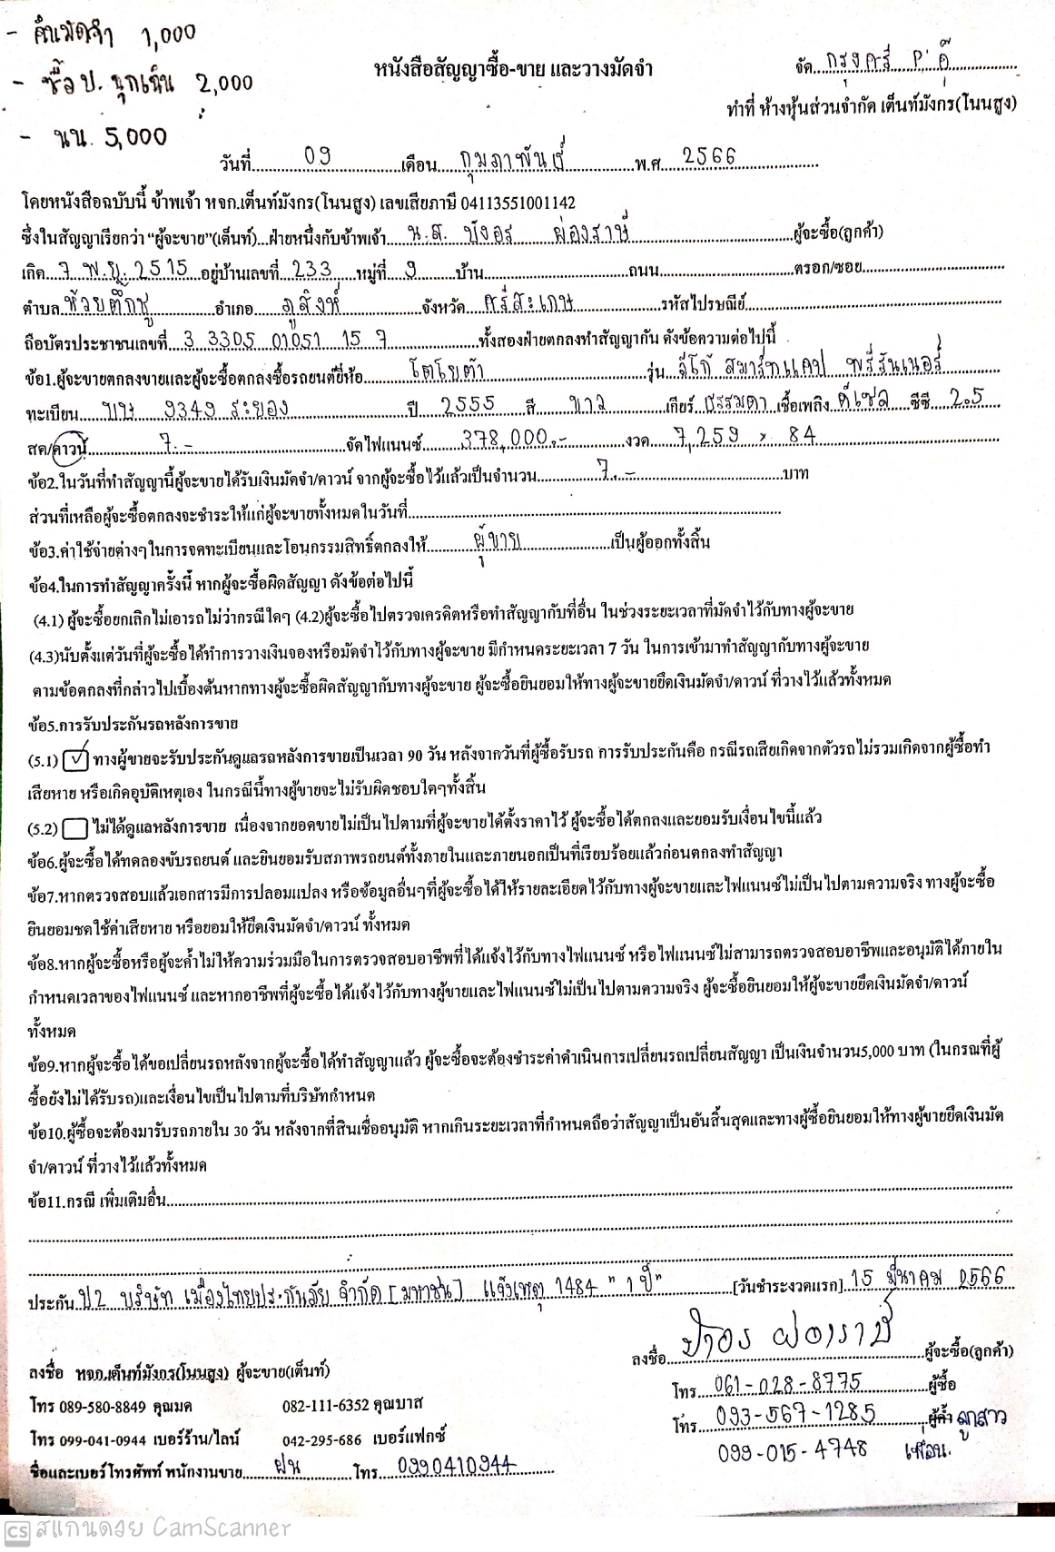 - ค่ามัดจำ 1,000
- ซื้อ ป. ฉุกเฉิน 2,000
- นน. 5,000
หนังสือสัญญาซื้อ-ขาย และวางมัดจำ
จัด กรุงศรี
ทำที่ ห้างหุ้นส่วนจำกัด เต็นท์มังกร(โนนสูง)
วันที่ 09 เดือน กุมภาพันธ์ พ.ศ 2566
โดยหนังสือฉบับนี้ ข้าพเจ้า หจก.เต็นท์มังกร(โนนสูง) เลขเสียภาษี 04113551001142
ซึ่งในสัญญาเรียกว่า “ผู้จะขาย”(เต็นท์) ฝ่ายหนึ่งกับข้าพเจ้า น.ส. บังอร ผ่องราษี ผู้จะซื้อ(ลูกค้า)
เกิด 7 พ.ย. 2515 อยู่บ้านเลขที่ 233 หมู่ที่ 9 บ้าน ถนน ตรอก/ซอย
ตำบล ห้วยตึ๊กชู อำเภอ ภูสิงห์ จังหวัด ศรีสะเกษ รหัสไปรษณีย์
ถือบัตรประชาชนเลขที่ 3 3305 01051 15 7 ทั้งสองฝ่ายตกลงทำสัญญากัน ดังข้อความต่อไปนี้
ข้อ1.ผู้จะขายตกลงขายและผู้จะซื้อตกลงซื้อรถยนต์ยี่ห้อ โตโยต้า รุ่น วีโก้ สมาร์ทแคป พรีรันเนอร์
ทะเบียน 9349 ระยอง ปี 2555 สี ขาว เกียร์ ธรรมดา เชื้อเพลิง ดีเซล ซีซี 2.5
สด/ดาวน์ 7.- จัดไฟแนนซ์ 378,000.- งวด 7,259 × 84
ข้อ2.ในวันที่ทำสัญญานี้ผู้จะขายได้รับเงินมัดจำ/ดาวน์ จากผู้จะซื้อไว้แล้วเป็นจำนวน 7.- บาท
ส่วนที่เหลือผู้จะซื้อตกลงจะชำระให้แก่ผู้จะขายทั้งหมดในวันที่
ข้อ3.ค่าใช้จ่ายต่างๆในการจดทะเบียนและโอนกรรมสิทธิ์ตกลงให้ ผู้ขาย เป็นผู้ออกทั้งสิ้น
ข้อ4.ในการทำสัญญาครั้งนี้ หากผู้จะซื้อผิดสัญญา ดังข้อต่อไปนี้
(4.1) ผู้จะซื้อยกเลิกไม่เอารถไม่ว่ากรณีใดๆ (4.2)ผู้จะซื้อไปตรวจเครดิตหรือทำสัญญากับที่อื่น ในช่วงระยะเวลาที่มัดจำไว้กับทางผู้จะขาย
(4.3)นับตั้งแต่วันที่ผู้จะซื้อได้ทำการวางเงินจองหรือมัดจำไว้กับทางผู้จะขาย มีกำหนดระยะเวลา 7 วัน ในการเข้ามาทำสัญญากับทางผู้จะขาย
ตามข้อตกลงที่กล่าวไปเบื้องต้นหากทางผู้จะซื้อผิดสัญญากับทางผู้จะขาย ผู้จะซื้อยินยอมให้ทางผู้จะขายยึดเงินมัดจำ/ดาวน์ ที่วางไว้แล้วทั้งหมด
ข้อ5.การรับประกันรถหลังการขาย
(5.1) ✓ ทางผู้ขายจะรับประกันดูแลรถหลังการขายเป็นเวลา 90 วัน หลังจากวันที่ผู้ซื้อรับรถ การรับประกันคือ กรณีรถเสียเกิดจากตัวรถไม่รวมเกิดจากผู้ซื้อทำ
เสียหาย หรือเกิดอุบัติเหตุเอง ในกรณีนี้ทางผู้ขายจะไม่รับผิดชอบใดๆทั้งสิ้น
(5.2) ไม่ได้ดูแลหลังการขาย เนื่องจากยอดขายไม่เป็นไปตามที่ผู้จะขายได้ตั้งราคาไว้ ผู้จะซื้อได้ตกลงและยอมรับเงื่อนไขนี้แล้ว
ข้อ6.ผู้จะซื้อได้ทดลองขับรถยนต์ และยินยอมรับสภาพรถยนต์ทั้งภายในและภายนอกเป็นที่เรียบร้อยแล้วก่อนตกลงทำสัญญา
ข้อ7.หากตรวจสอบแล้วเอกสารมีการปลอมแปลง หรือข้อมูลอื่นๆที่ผู้จะซื้อได้ให้รายละเอียดไว้กับทางผู้จะขายและไฟแนนซ์ไม่เป็นไปตามความจริง ทางผู้จะซื้อ
ยินยอมชดใช้ค่าเสียหาย หรือยอมให้ยึดเงินมัดจำ/ดาวน์ ทั้งหมด
ข้อ8.หากผู้จะซื้อหรือผู้จะค้ำไม่ให้ความร่วมมือในการตรวจสอบอาชีพที่ได้แจ้งไว้กับทางไฟแนนซ์ หรือไฟแนนซ์ไม่สามารถตรวจสอบอาชีพและอนุมัติได้ภายใน
กำหนดเวลาของไฟแนนซ์ และหากอาชีพที่ผู้จะซื้อได้แจ้งไว้กับทางผู้ขายและไฟแนนซ์ไม่เป็นไปตามความจริง ผู้จะซื้อยินยอมให้ผู้จะขายยึดเงินมัดจำ/ดาวน์
ทั้งหมด
ข้อ9.หากผู้จะซื้อได้ขอเปลี่ยนรถหลังจากผู้จะซื้อได้ทำสัญญาแล้ว ผู้จะซื้อจะต้องชำระค่าดำเนินการเปลี่ยนรถเปลี่ยนสัญญา เป็นเงินจำนวน5,000 บาท (ในกรณที่ผู้
ซื้อยังไม่ได้รับรถ)และเงื่อนไขเป็นไปตามที่บริษัทกำหนด
ข้อ10.ผู้ซื้อจะต้องมารับรถภายใน 30 วัน หลังจากที่สินเชื่ออนุมัติ หากเกินระยะเวลาที่กำหนดถือว่าสัญญาเป็นอันสิ้นสุดและทางผู้ซื้อยินยอมให้ทางผู้ขายยึดเงินมัด
จำ/ดาวน์ ที่วางไว้แล้วทั้งหมด
ข้อ11.กรณี เพิ่มเติมอื่น
ประกัน ป2 บริษัท เมืองไทยประกันภัย จำกัด [มหาชน] แจ้งเหตุ 1484 " 1 ปี" [วันชำระงวดแรก] 15 มีนาคม 2566
ลงชื่อ บังอร ผ่องราษี ผู้จะซื้อ(ลูกค้า)
ลงชื่อ หจก.เต็นท์มังกร(โนนสูง) ผู้จะขาย(เต็นท์)
โทร 061-028-8775 ผู้ซื้อ
โทร 089-580-8849 คุณมด 082-111-6352 คุณบาส
โทร 093-567-1285 ผู้ค้ำ ลูกสาว
โทร 099-041-0944 เบอร์ร้าน/ไลน์ 042-295-686 เบอร์แฟกซ์
099-015-4748 เพื่อน.
ชื่อและเบอร์โทรศัพท์ พนักงานขาย ฝน โทร 0990410944
CS สแกนด้วย CamScanner